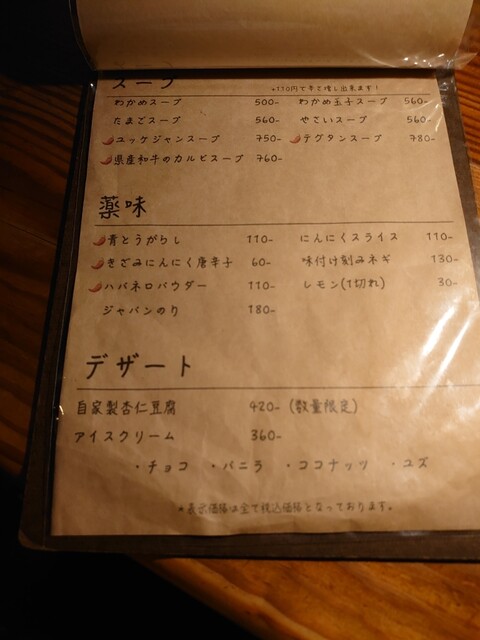 スープ +110円で辛さ増し出来ます!
わかめスープ 500- わかめ玉子スープ 560-
たまごスープ 560- やさいスープ 560-
ユッケジャンスープ 750- テグタンスープ 780-
県産和牛のカルビスープ 760-
薬味
青とうがらし 110- にんにくスライス 110-
きざみにんにく唐辛子 60- 味付け刻みネギ 130-
ハバネロパウダー 110- レモン(1切れ) 30-
ジャバンのり 180-
デザート
自家製杏仁豆腐 420- (数量限定)
アイスクリーム 360-
・チョコ ・バニラ ・ココナッツ ・ユズ
*表示価格は全て税込価格となっております。